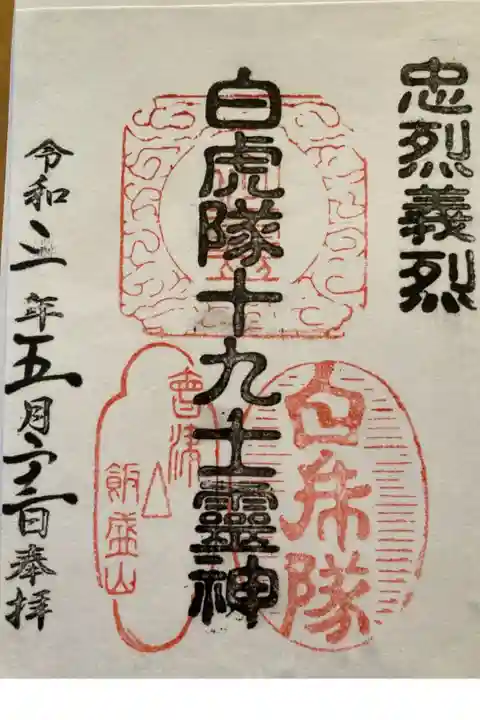 忠烈義烈
白虎隊十九士靈神
白虎隊
會津
飯盛山
令和二年五月二日奉拝